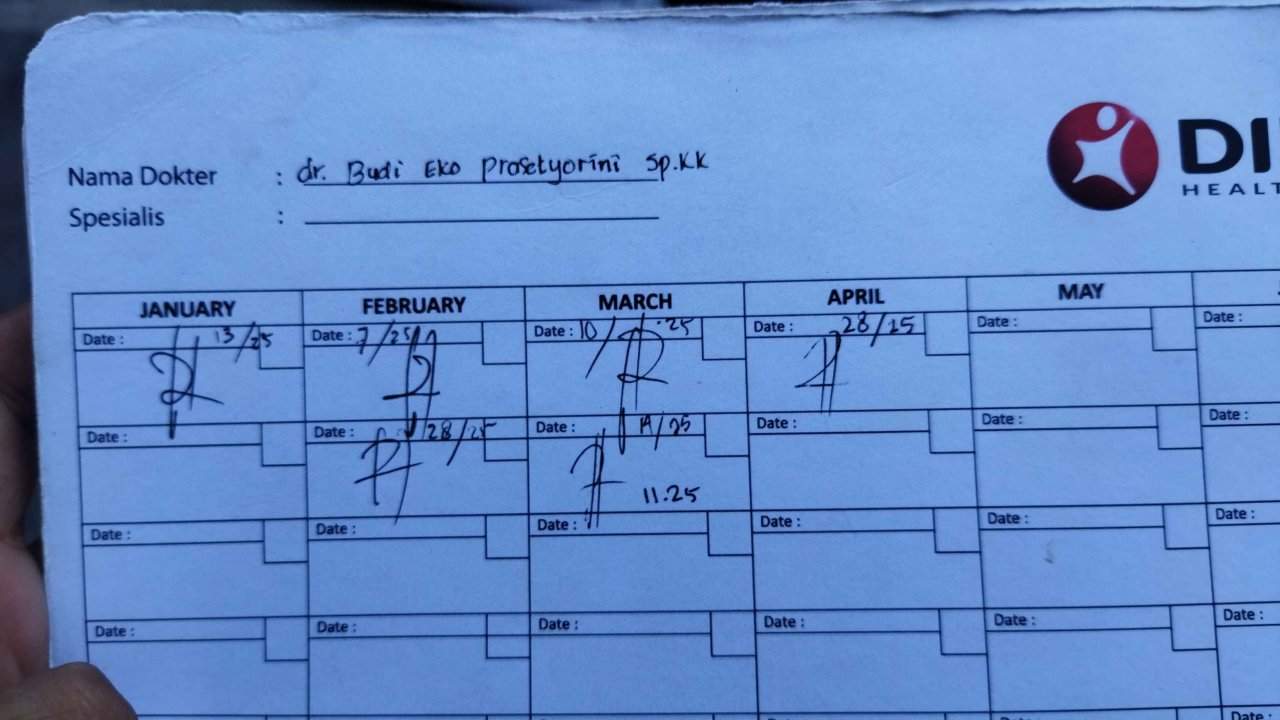 Nama Dokter : dr. Budi Eko Prasetyorini Sp.KK
Spesialis :
DI
HEALT
JANUARY FEBRUARY MARCH APRIL MAY
Date : 13/25 Date : 7/25 Date : 10/ .25 Date : 28/25 Date : Date :
Date : Date : 28/25 Date : 19/25 Date : Date : Date :
11.25
Date : Date : Date : Date : Date : Date :
Date : Date : Date : Date : Date : Date :
Date :